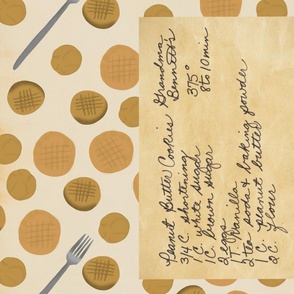 Peanut Butter Cookies Grandma
Bennett's
3/4 C. shortening
375°
1 C. white sugar
8 to 10 min
1 C. brown sugar
2 eggs
1 T. Vanilla
2 tea soda & baking powder
1 C. peanut butter
2 C. flour